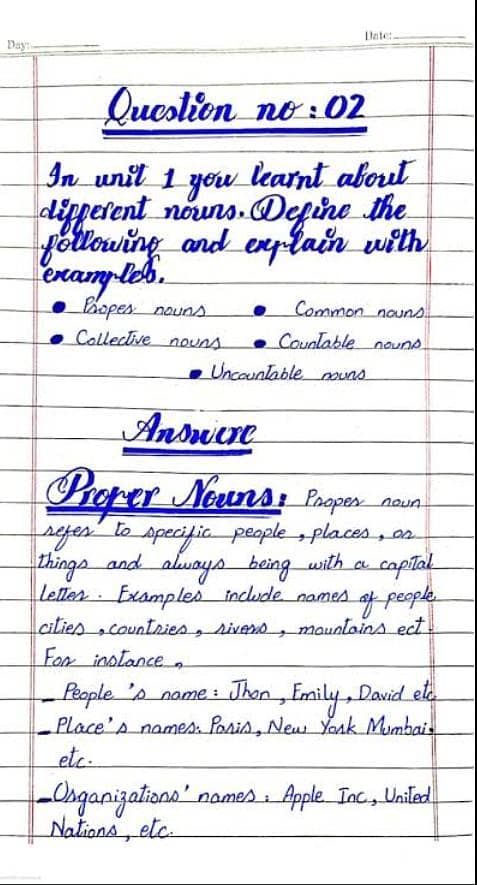 Day:
Date:
Question no : 02
In unit 1 you learnt about
different nouns. Define the
following and explain with
examples.
• Proper nouns • Common nouns
• Collective nouns • Countable nouns
• Uncountable nouns
Answere
Proper Nouns: Proper noun
refer to specific people, places, or
things and always being with a capital
letter. Examples include names of people,
cities, countries, rivers, mountains ect.
For instance,
_ People 's name: Jhon, Emily, David etc
_ Place's names: Paris, New York Mumbai.
etc.
_ Organizations' names: Apple Inc, United
Nations, etc.